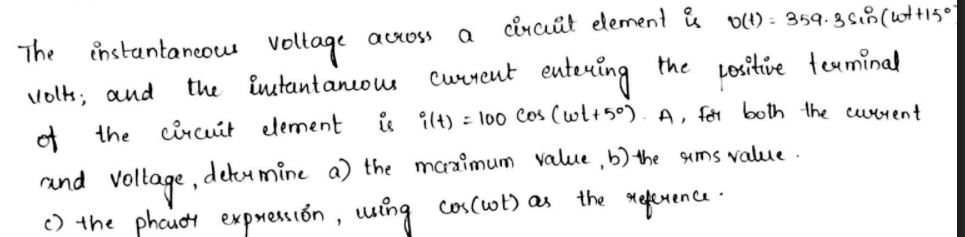 The instantaneous voltage across a circuit element is v(t) = 359.3 sin(ωt+15°)
volts; and the instantaneous current entering the positive terminal
of the circuit element is i(t) = 100 cos (ωt+5°). A, for both the current
and voltage, determine a) the maximum value, b) the rms value.
c) the phasor expression, using cos(ωt) as the reference.